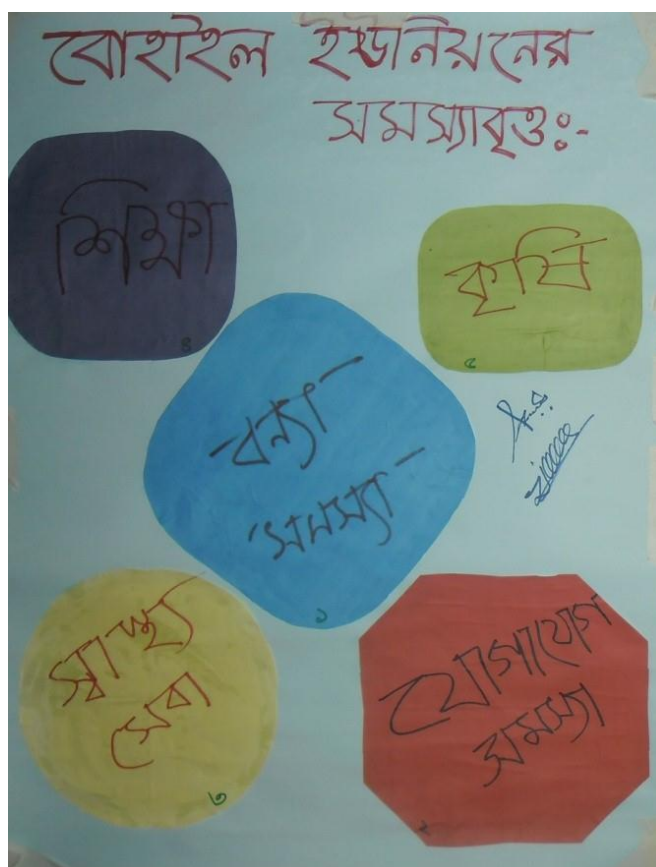 বোহাইল ইউনিয়নের
সমস্যাবৃত্ত:-
শিক্ষা
৪
কৃষি
৫
বন্যা
সমস্যা
১
স্বাস্থ্য
সেবা
৩
যোগাযোগ
সমস্যা
২